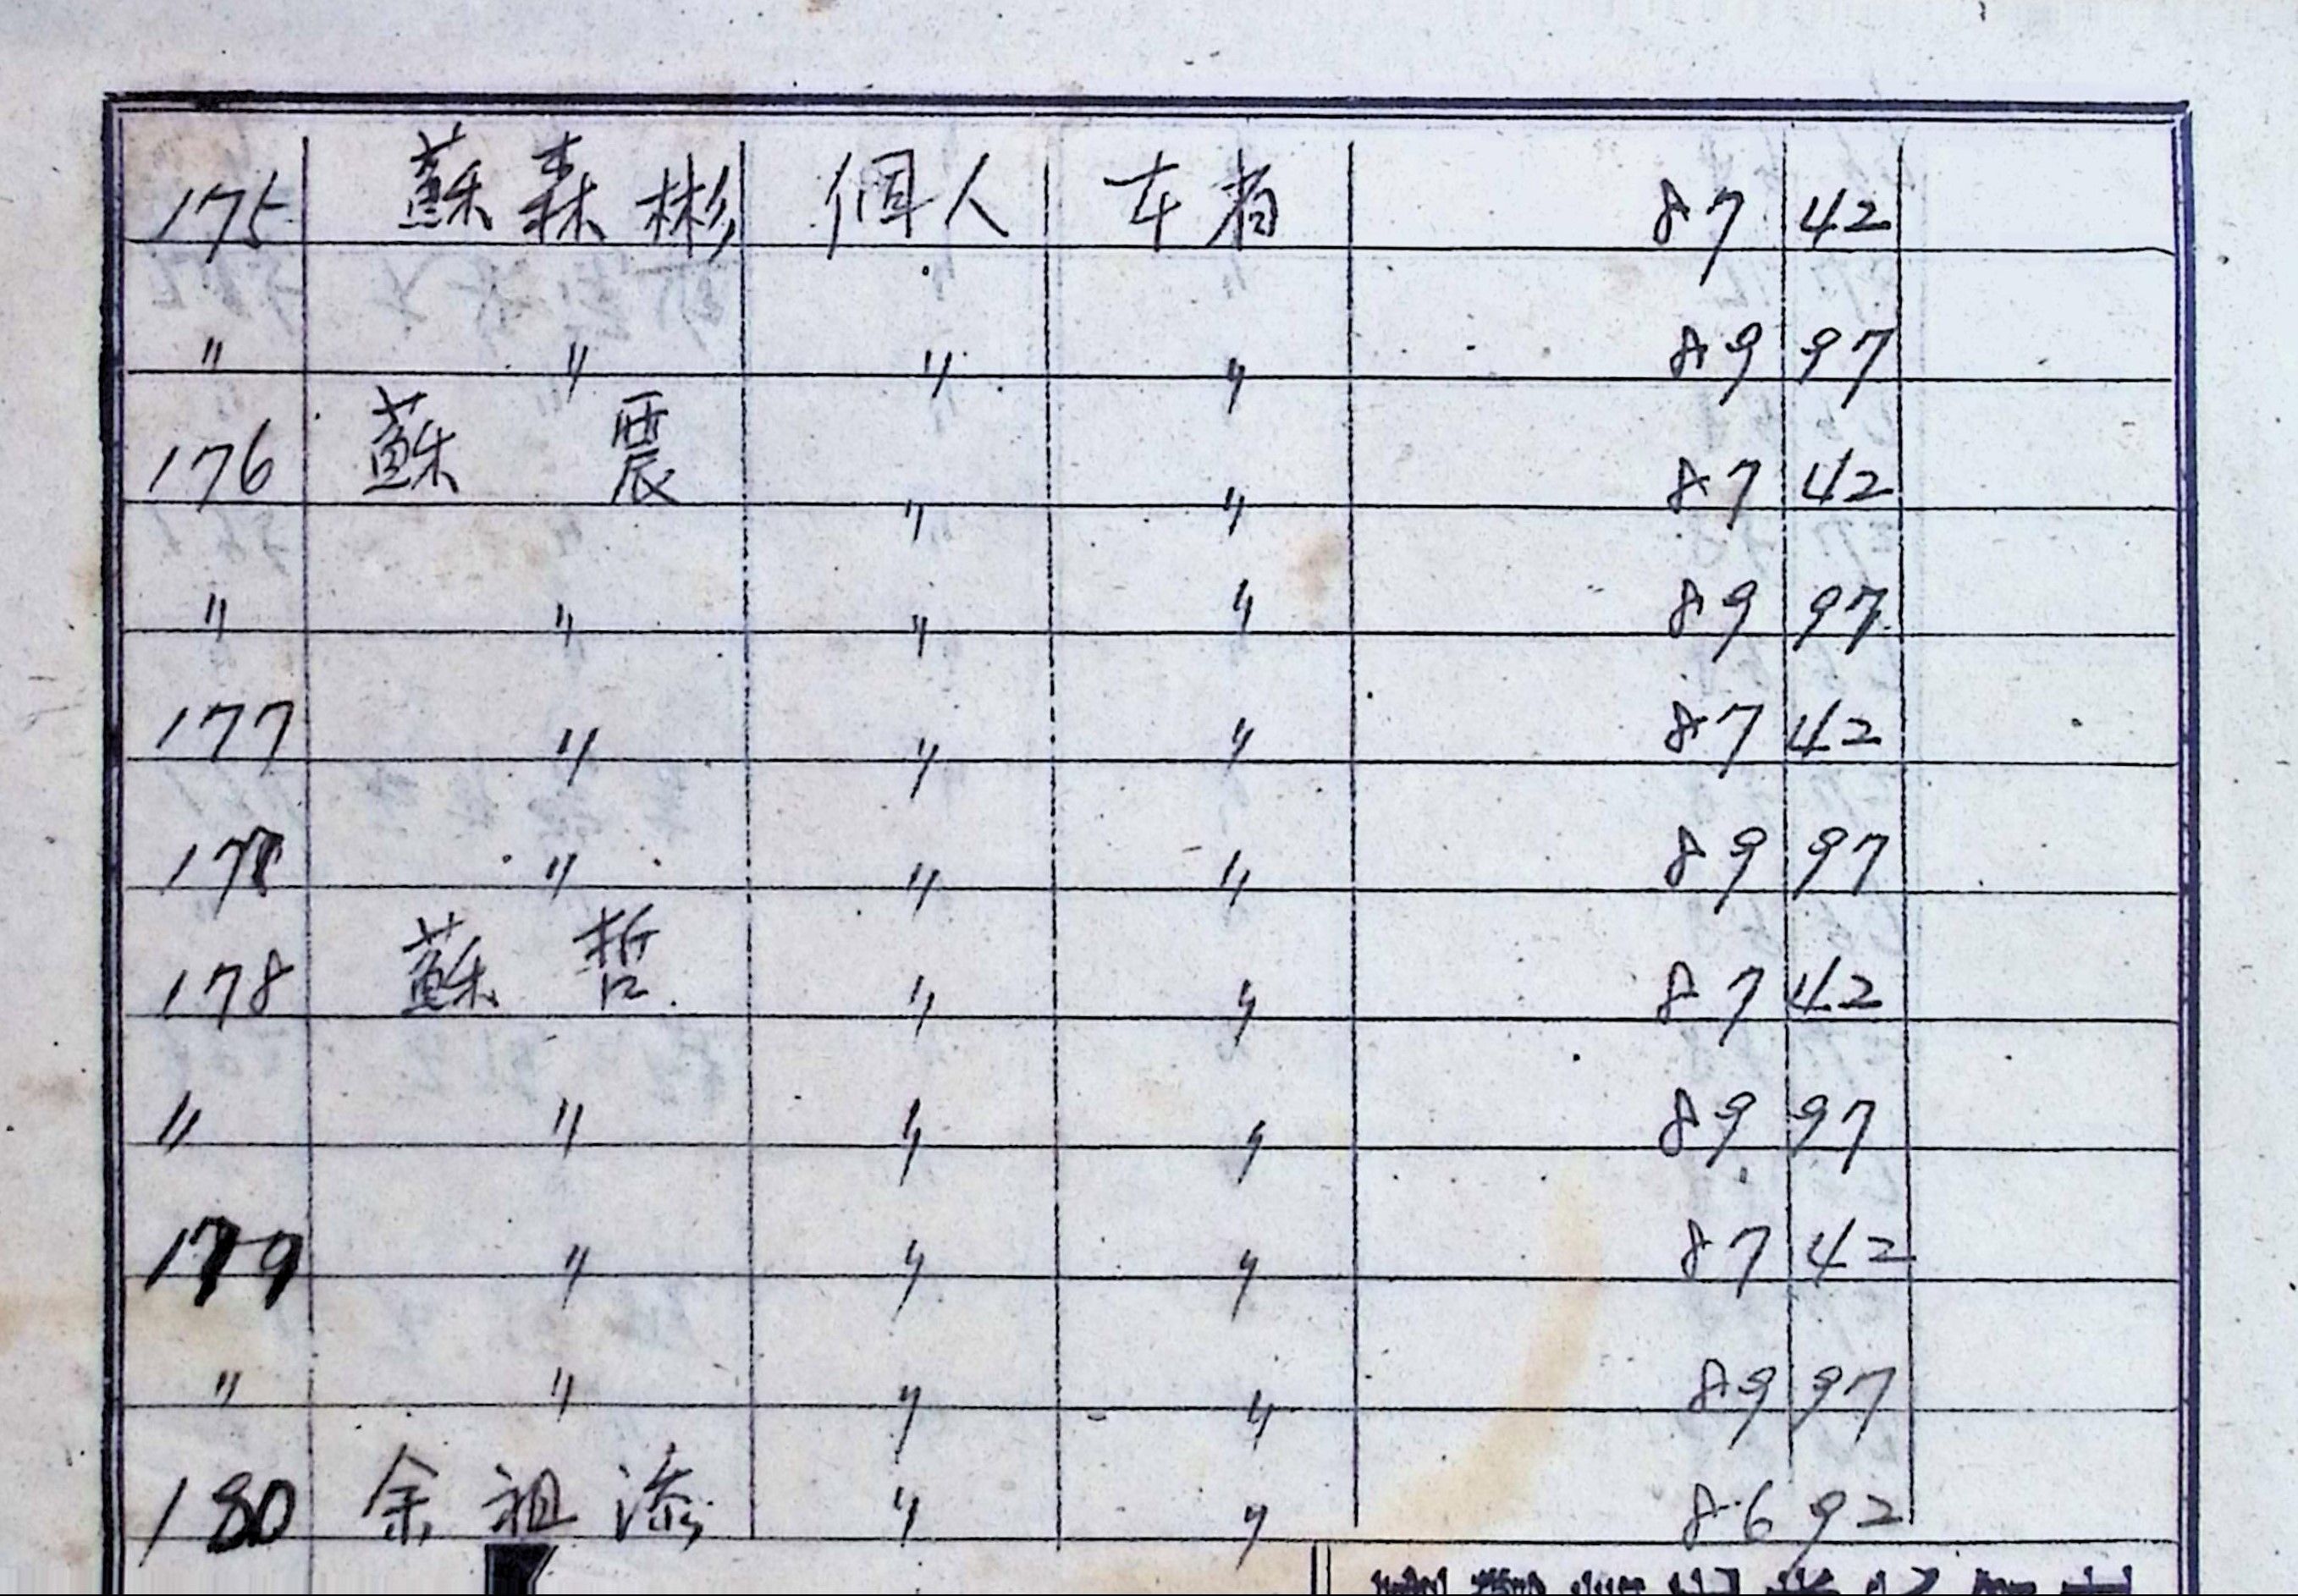 175 蘇森彬 個人 在為 87 42
〃 〃 〃 〃 89 97
176 蘇 震 〃 〃 87 42
〃 〃 〃 〃 89 97
177 〃 〃 〃 87 42
177 〃 〃 〃 89 97
178 蘇 哲 〃 〃 87 42
〃 〃 〃 〃 89 97
179 〃 〃 〃 87 42
〃 〃 〃 〃 89 97
180 余祖添 〃 〃 86 92